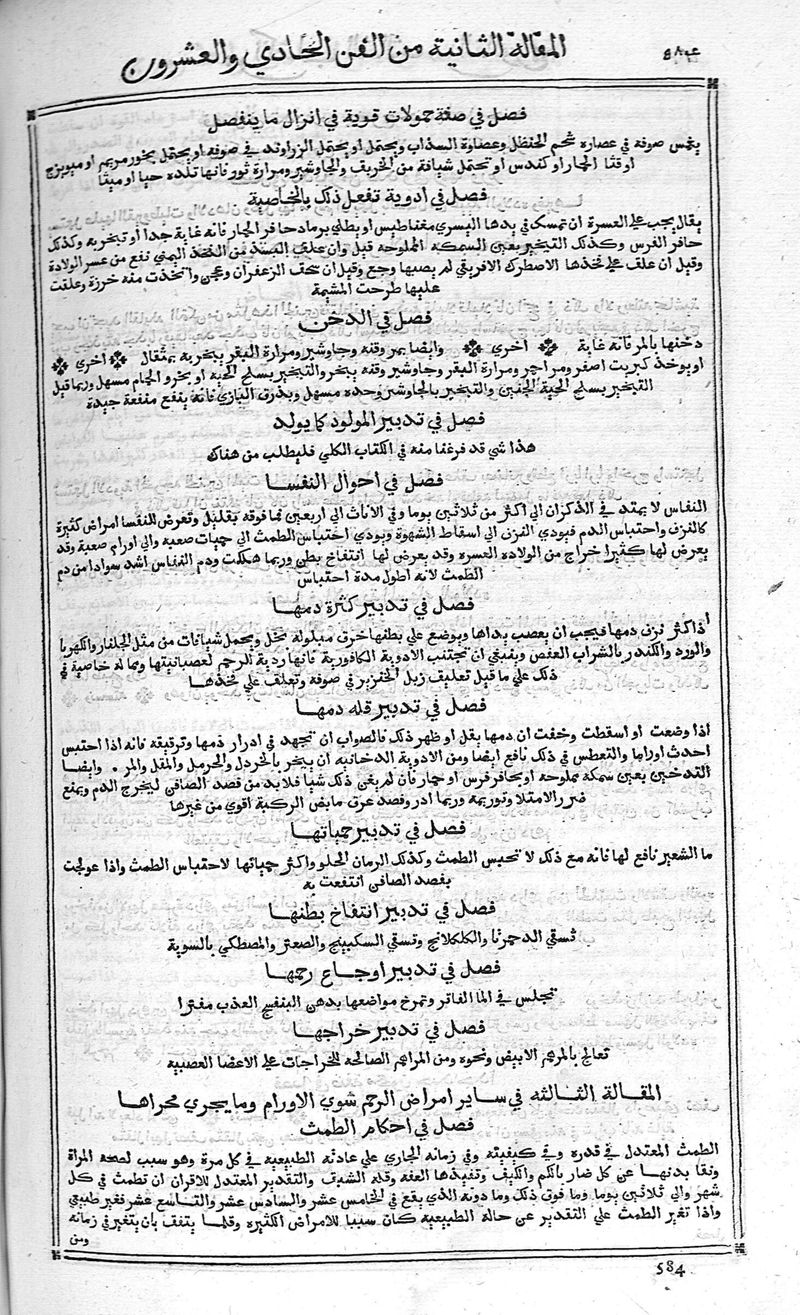 ٥٨٤
المقالة الثانية من الفن الحادي والعشرون
فصل في صفة حمولات قوية في انزال ما ينفصل
يغمس صوفة في عصاره شحم الحنظل وعصاوة السذاب ويحتمل او يحتمل الزراوند في صوفة او يحتمل بخور مريم او ميويزج
او قثا الحمار او كندس او تحتمل شيافة من الخربق والجاوشير ومرارة ثور فانها تلده حيا او ميتا
فصل في ادوية تفعل ذلك بالخاصية
يقال يجب على العسرة ان تمسك في يدها اليسري مغناطيس او يطلي برماد حافر الحمار فانه غاية جدا او تبخر به وكذلك
حافر الفرس وكذلك التبخير بعين السمكه المملوحه قيل وان علف البسد من الفخذ اليمني نفع من عسر الولادة
وقيل ان علف على فخذها الاصطرك الافريقي لم يصبها وجع وقيل ان سحق الزعفران وعجن واتخذت منه خرزة وعلقت
عليها طرحت المشيمة
فصل في الدخن
دخنها بالمر فانه غاية اخري وايضا بمر وقنه وجاوشير ومرارة البقر يبخر به بمثقال اخري
او يوخذ كبريت اصفر ومر احمر ومرارة البقر وجاوشير وقنه يبخر والتبخير بسلخ الحية او بخرو الحمام مسهل وربما قيل
التبخير بسلخ الحية الجنين والتبخير بالجاوشير وحده مسهل وبذرق البازي فانه ينفع منفعة جيدة
فصل في تدبير المولود كما يولد
هذا شي قد فرغنا منه في الكتاب الكلي فليطلب من هناك
فصل في احوال النفسا
النفاس لا يمتد في الذكران الي اكثر من ثلاثين يوما وفي الاناث الي اربعين فما فوقه بقليل وتعرض للنفسا امراض كثيرة
كالنزف واحتباس الدم فيودي النزف الي اسقاط الشهوة ويودي احتباس الطمث الي حميات صعبه والي اورام صعبة وقد
يعرض لها كثيرا خراج من الولاده العسره وقد يعرض لها انتفاخ بطن وربما هلكت ودم النفاس اشد سوادا من دم
الطمث لانه اطول مدة احتباس
فصل في تدبير كثرة دمها
اذا كثر نزف دمها فيجب ان يعصب يداها ويوضع علي بطنها خرق مبلولة بخل ويحمل شيافات من مثل الجلنار والكهربا
والورد والكندر بالشراب العفص وينبغي ان تجتنب الادوية الكافورية فانها ردية للرحم لعصبانيتها ومما له خاصية في
ذلك علي ما قيل تعليق زبل الخنزير في صوفه وتعلق علي فخذها
فصل في تدبير قله دمها
اذا وضعت او اسقطت وخفت ان دمها يقل او ظهر ذلك فالصواب ان تجهد في ادرار دمها وترقيقه فانه اذا احتبس
احدث اوراما والتعطس في ذلك نافع ايضا ومن الادوية الدخانيه ان يبخر بالخردل والحرمل والمقل والمر . وايضا
التدخين بعين سمكه مملوحه او بحافر فرس او حمار فان لم يغن ذلك شيا فلا بد من فصد الصافن ليخرج الدم ويمنع
ضرر الامتلا وتوريمه وربما ادر وفصد عرق مابض الركبة اقوي من غيرها
فصل في تدبير حمياتها
ما الشعير نافع لها فانه مع ذلك لا تحبس الطمث وكذلك الرمان الحلو واكثر حمياتها لاحتباس الطمث واذا عولجت
بفصد الصافن انتفعت به
فصل في تدبير انتفاخ بطنها
تسقي الدحمرثا والكلكلانج وتسقي السكبينج والصعتر والمصطكي بالسوية
فصل في تدبير اوجاع رحمها
تجلس في الما الفاتر وتمرخ مواضعها بدهن البنفسج العذب مفترا
فصل في تدبير خراجها
تعالج بالمرهم الابيض ونحوه ومن المراهم الصالحه للخراجات علي الاعضا العصبية
المقالة الثالثه في ساير امراض الرحم سوي الاورام وما يجري مجراها
فصل في احكام الطمث
الطمث المعتدل في قدره وفي كيفيته وفي زمانه الجاري علي عادته الطبيعيه في كل مرة وهو سبب لصحه المراة
ونقا بدنها عن كل ضار بالكم والكيف وتفيدها العفه وقله الشبق والتقدير المعتدل للاقران ان تطمث في كل
شهر والي ثلاثين يوما وما فوق ذلك وما دونه الذي يقع في الخامس عشر والسادس عشر والتاسع عشر فغير طبيعي
واذا تغير الطمث علي التقدير عن حالة الطبيعيه كان سببا للامراض الكثيره وقلما يتفق بان يتغير في زمانه
ومن
584